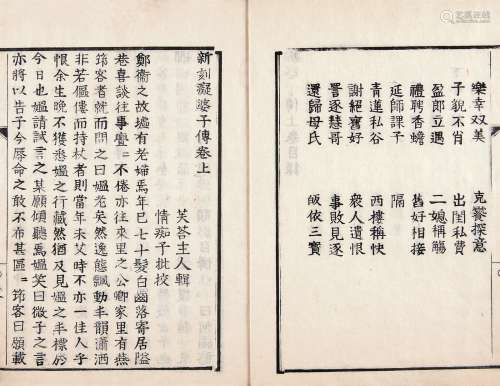 樂幸双美 克襄探意
子貌不肖 出閨私費
盈郎立遇 二媳稱觴
禮聘香蟾 舊好相接
延師課子 隔
青蓮私谷 西樓稱快
謝絕奮好 衆人遺恨
詈逐慧哥 事敗見逐
還歸母氏 皈依三寶
新刻癡婆子傳卷上
芙蓉主人輯
情痴子批挍
鄭衞之故墟有老婦焉年已七十髮白齒落寄居隘
巷喜談往事亹亹不倦亦往來里之公卿家里有燕
筇客者就而問之曰媼老矣然逸態飄動丰韻瀟洒
非若傴僂而持杖者則當年未艾時不亦一佳人乎
恨余生晚不獲悉媼之行藏然猶及見媼之丰標於
今日也媼請試言之某願傾聽焉媼笑曰微子之言
亦將以告子今辱命之敢不布其區區筇客曰願載